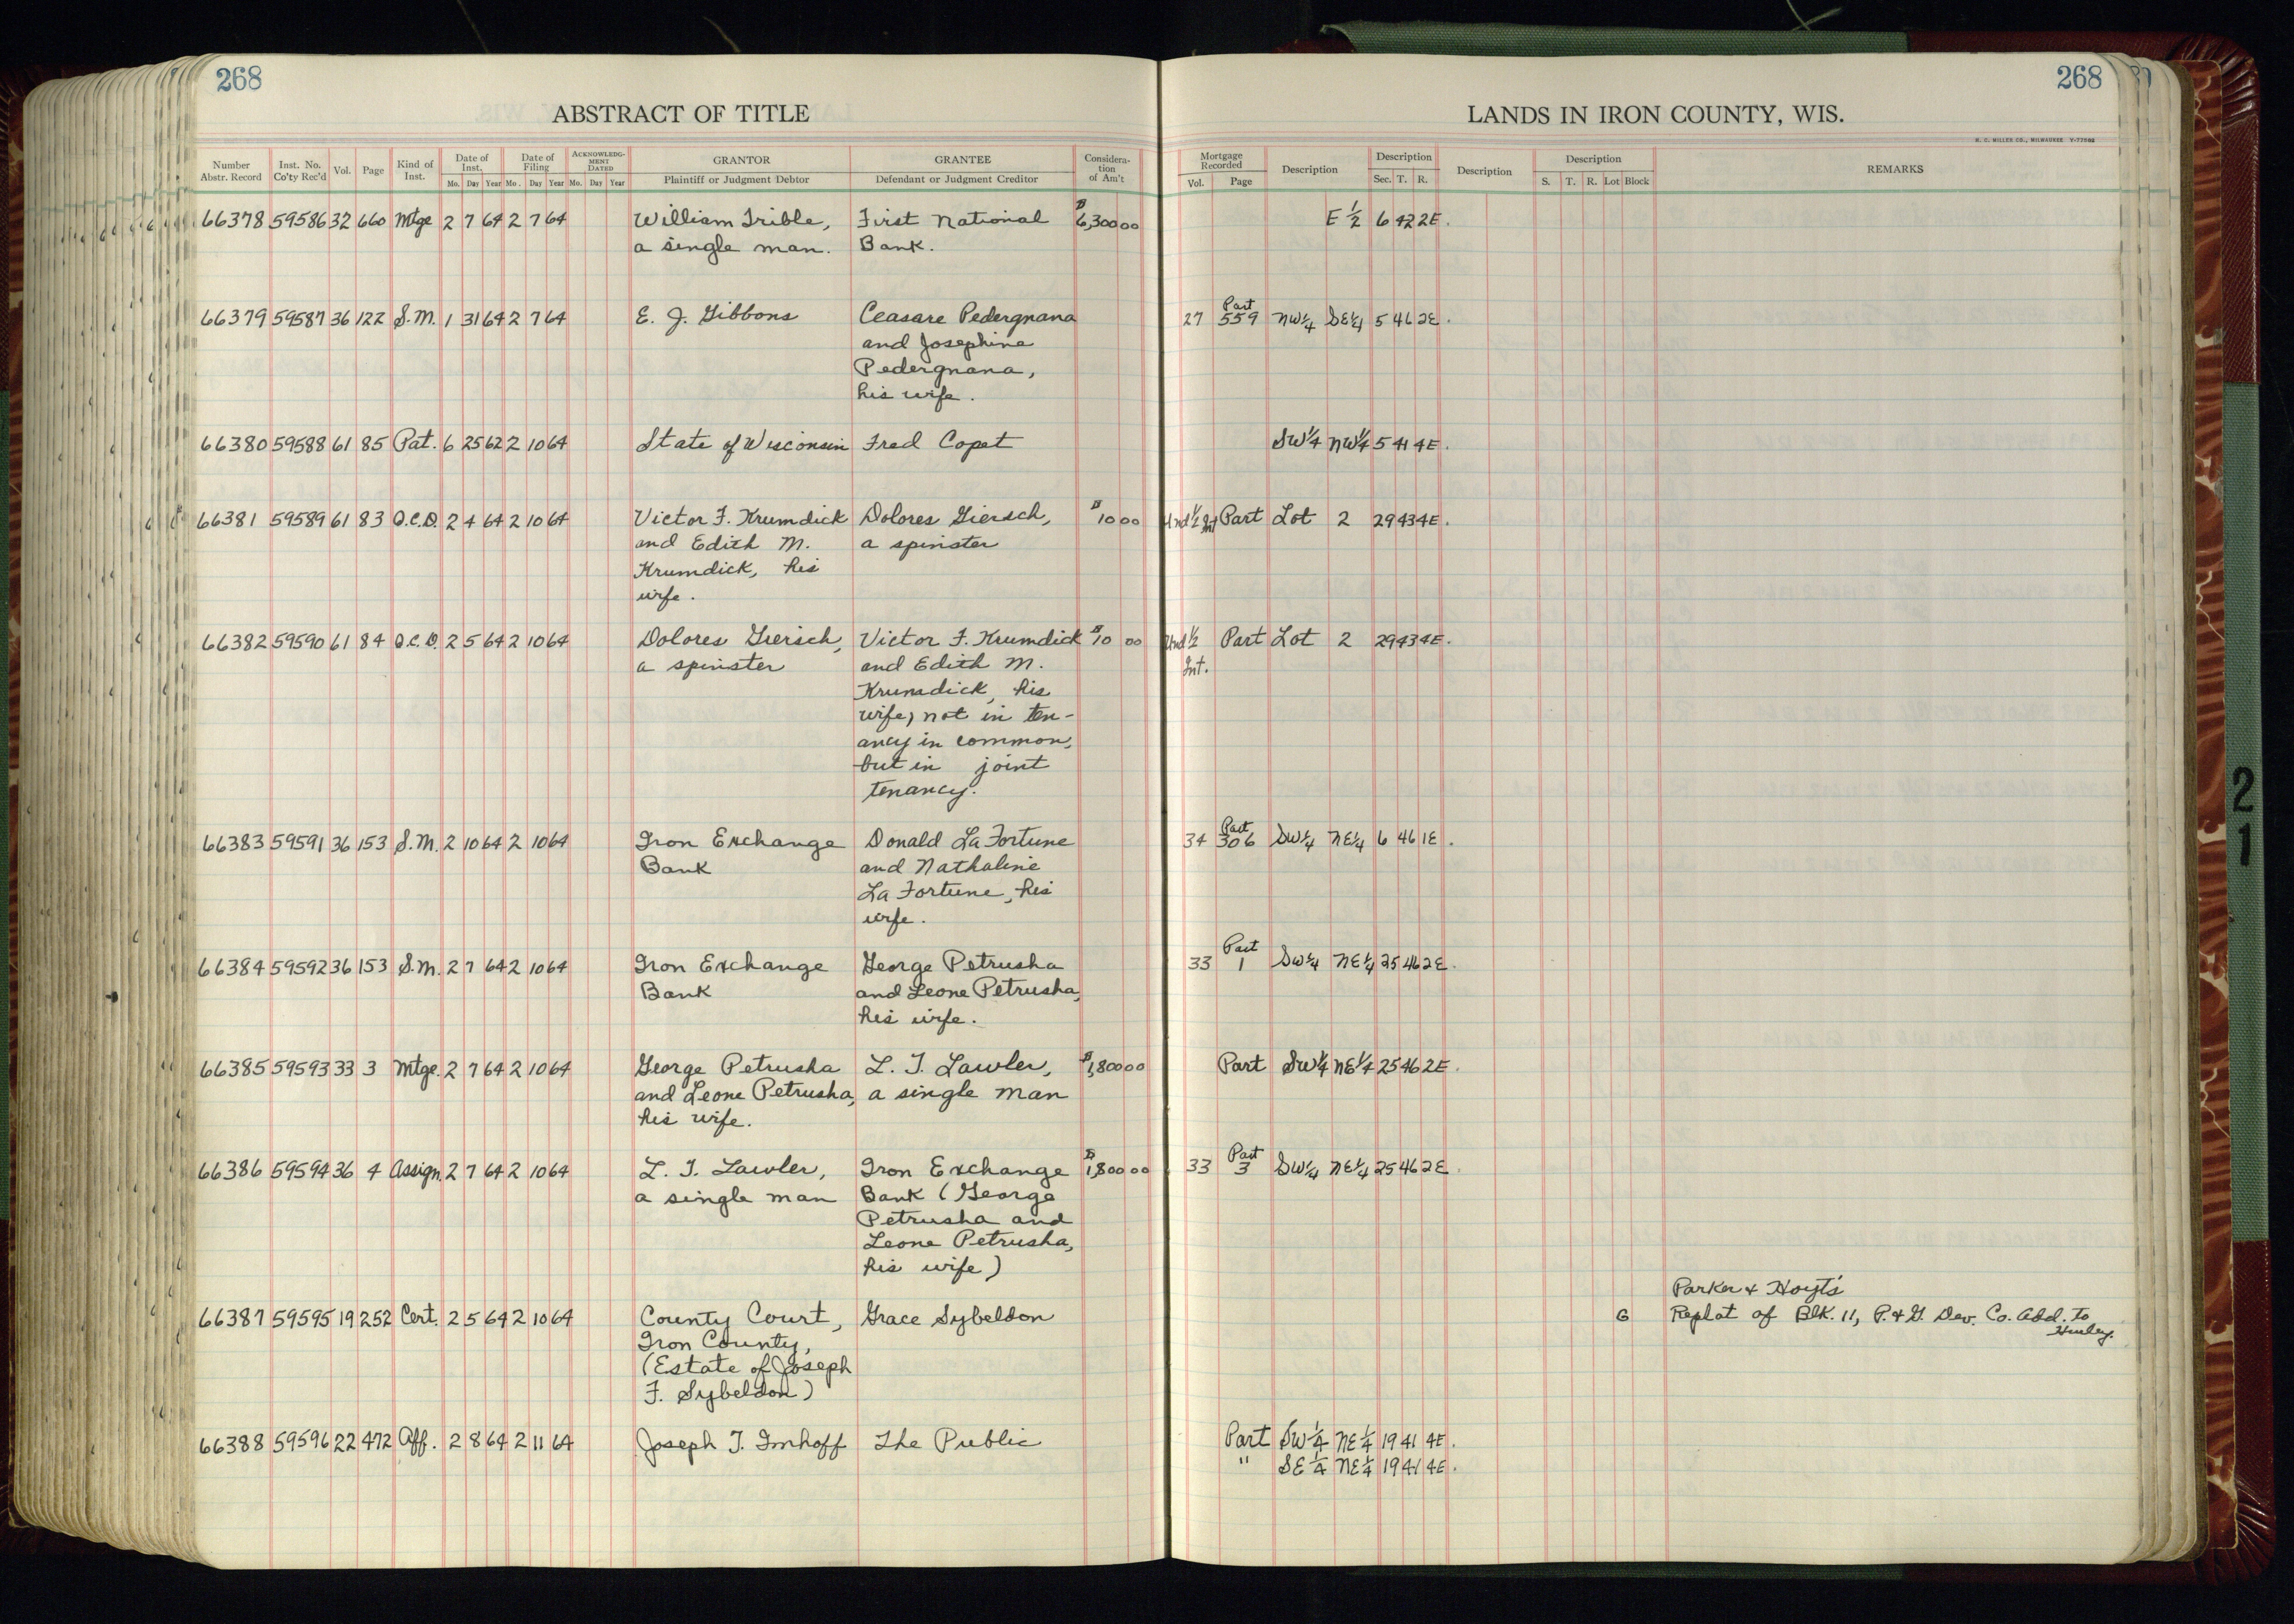 268
268
ABSTRACT OF TITLE
LANDS IN IRON COUNTY, WIS.
H. C. MILLER CO., MILWAUKEE
Number Abstr. Record Inst. No. Co'ty Rec'd Vol. Page Kind of Inst. Date of Inst. Mo. Day Year Date of Filing Mo. Day Year ACKNOWLEDGMENT DATED Mo. Day Year GRANTOR Plaintiff or Judgment Debtor GRANTEE Defendant or Judgment Creditor Consideration of Am't Mortgage Recorded Vol. Page Description Description Sec. T. R. Description Description S. T. R. Lot Block REMARKS
66378 59586 32 660 Mtge 2 7 64 2 7 64 William Trible, First National $6,300 00 E 1/2 6 42 2E.
a single man. Bank.
Part
66379 59587 36 122 S.M. 1 31 64 2 7 64 E. J. Gibbons Ceasare Pedergnana 27 559 NW1/4 SE1/4 5 46 2E.
and Josephine
Pedergnana,
his wife.
66380 59588 61 85 Pat. 6 25 62 2 10 64 State of Wisconsin Fred Copet SW1/4 NW1/4 5 41 4E.
66381 59589 61 83 Q.C.D. 2 4 64 2 10 64 Victor F. Krumdick Dolores Giersch, $10 00 Und 1/2 Int Part Lot 2 29 43 4E.
and Edith M. a spinster
Krumdick, his
wife.
66382 59590 61 84 Q.C.D. 2 5 64 2 10 64 Dolores Giersch, Victor F. Krumdick $10 00 Und 1/2 Part Lot 2 29 43 4E.
a spinster and Edith M. Int.
Krumdick, his
wife, not in ten-
ancy in common,
but in joint
tenancy.
Part
66383 59591 36 153 S.M. 2 10 64 2 10 64 Iron Exchange Donald LaFortune 34 306 SW1/4 NE1/4 6 46 1E.
Bank and Nathaline
LaFortune, his
wife.
Part
66384 59592 36 153 S.M. 2 7 64 2 10 64 Iron Exchange George Petrusha 33 1 SW1/4 NE1/4 25 46 2E.
Bank and Leone Petrusha,
his wife.
66385 59593 33 3 Mtge. 2 7 64 2 10 64 George Petrusha L. T. Lawler, $1,800 00 Part SW1/4 NE1/4 25 46 2E.
and Leone Petrusha, a single man
his wife.
Part
66386 59594 36 4 Assign. 2 7 64 2 10 64 L. T. Lawler, Iron Exchange $1,800 00 33 3 SW1/4 NE1/4 25 46 2E.
a single man Bank (George
Petrusha and
Leone Petrusha,
his wife)
Parker & Hoyt's
66387 59595 19 252 Cert. 2 5 64 2 10 64 County Court, Grace Sybeldon 6 Replat of Blk. 11, P. & G. Dev. Co. Add. to
Hurley.
Iron County,
(Estate of Joseph
F. Sybeldon)
66388 59596 22 472 Aff. 2 8 64 2 11 64 Joseph T. Imhoff The Public Part SW1/4 NE1/4 19 41 4E.
" SE1/4 NE1/4 19 41 4E.
2
1